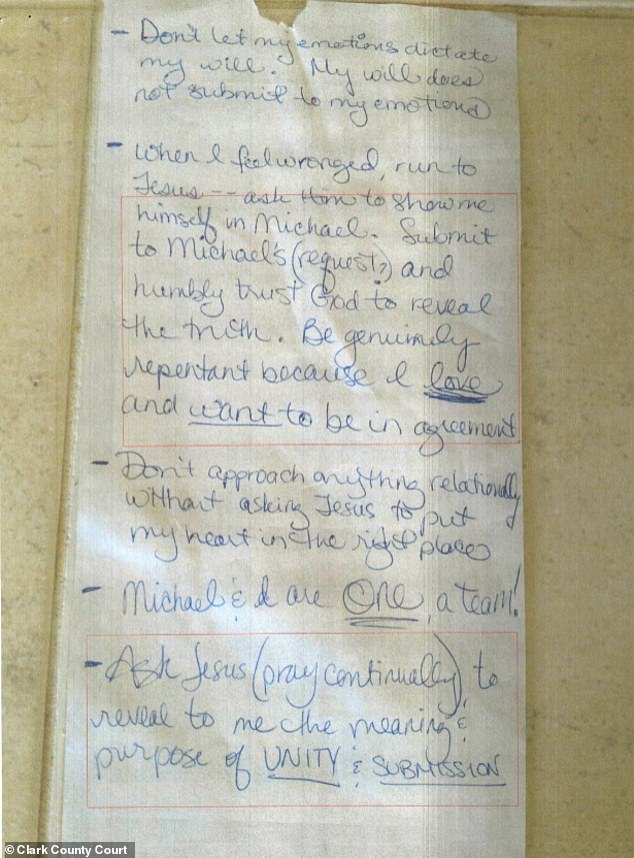 - Don't let my emotions dictate
my will. My will does
not submit to my emotions
- When I feel wronged, run to
Jesus -- ask Him to show me
himself in Michael. Submit
to Michael's (request?) and
humbly trust God to reveal
the truth. Be genuinely
repentant because I love
and want to be in agreement
- Don't approach anything relationally
without asking Jesus to put
my heart in the right place
- Michael & I are ONE, a team!
- Ask Jesus (pray continually) to
reveal to me the meaning &
purpose of UNITY & SUBMISSION
© Clark County Court